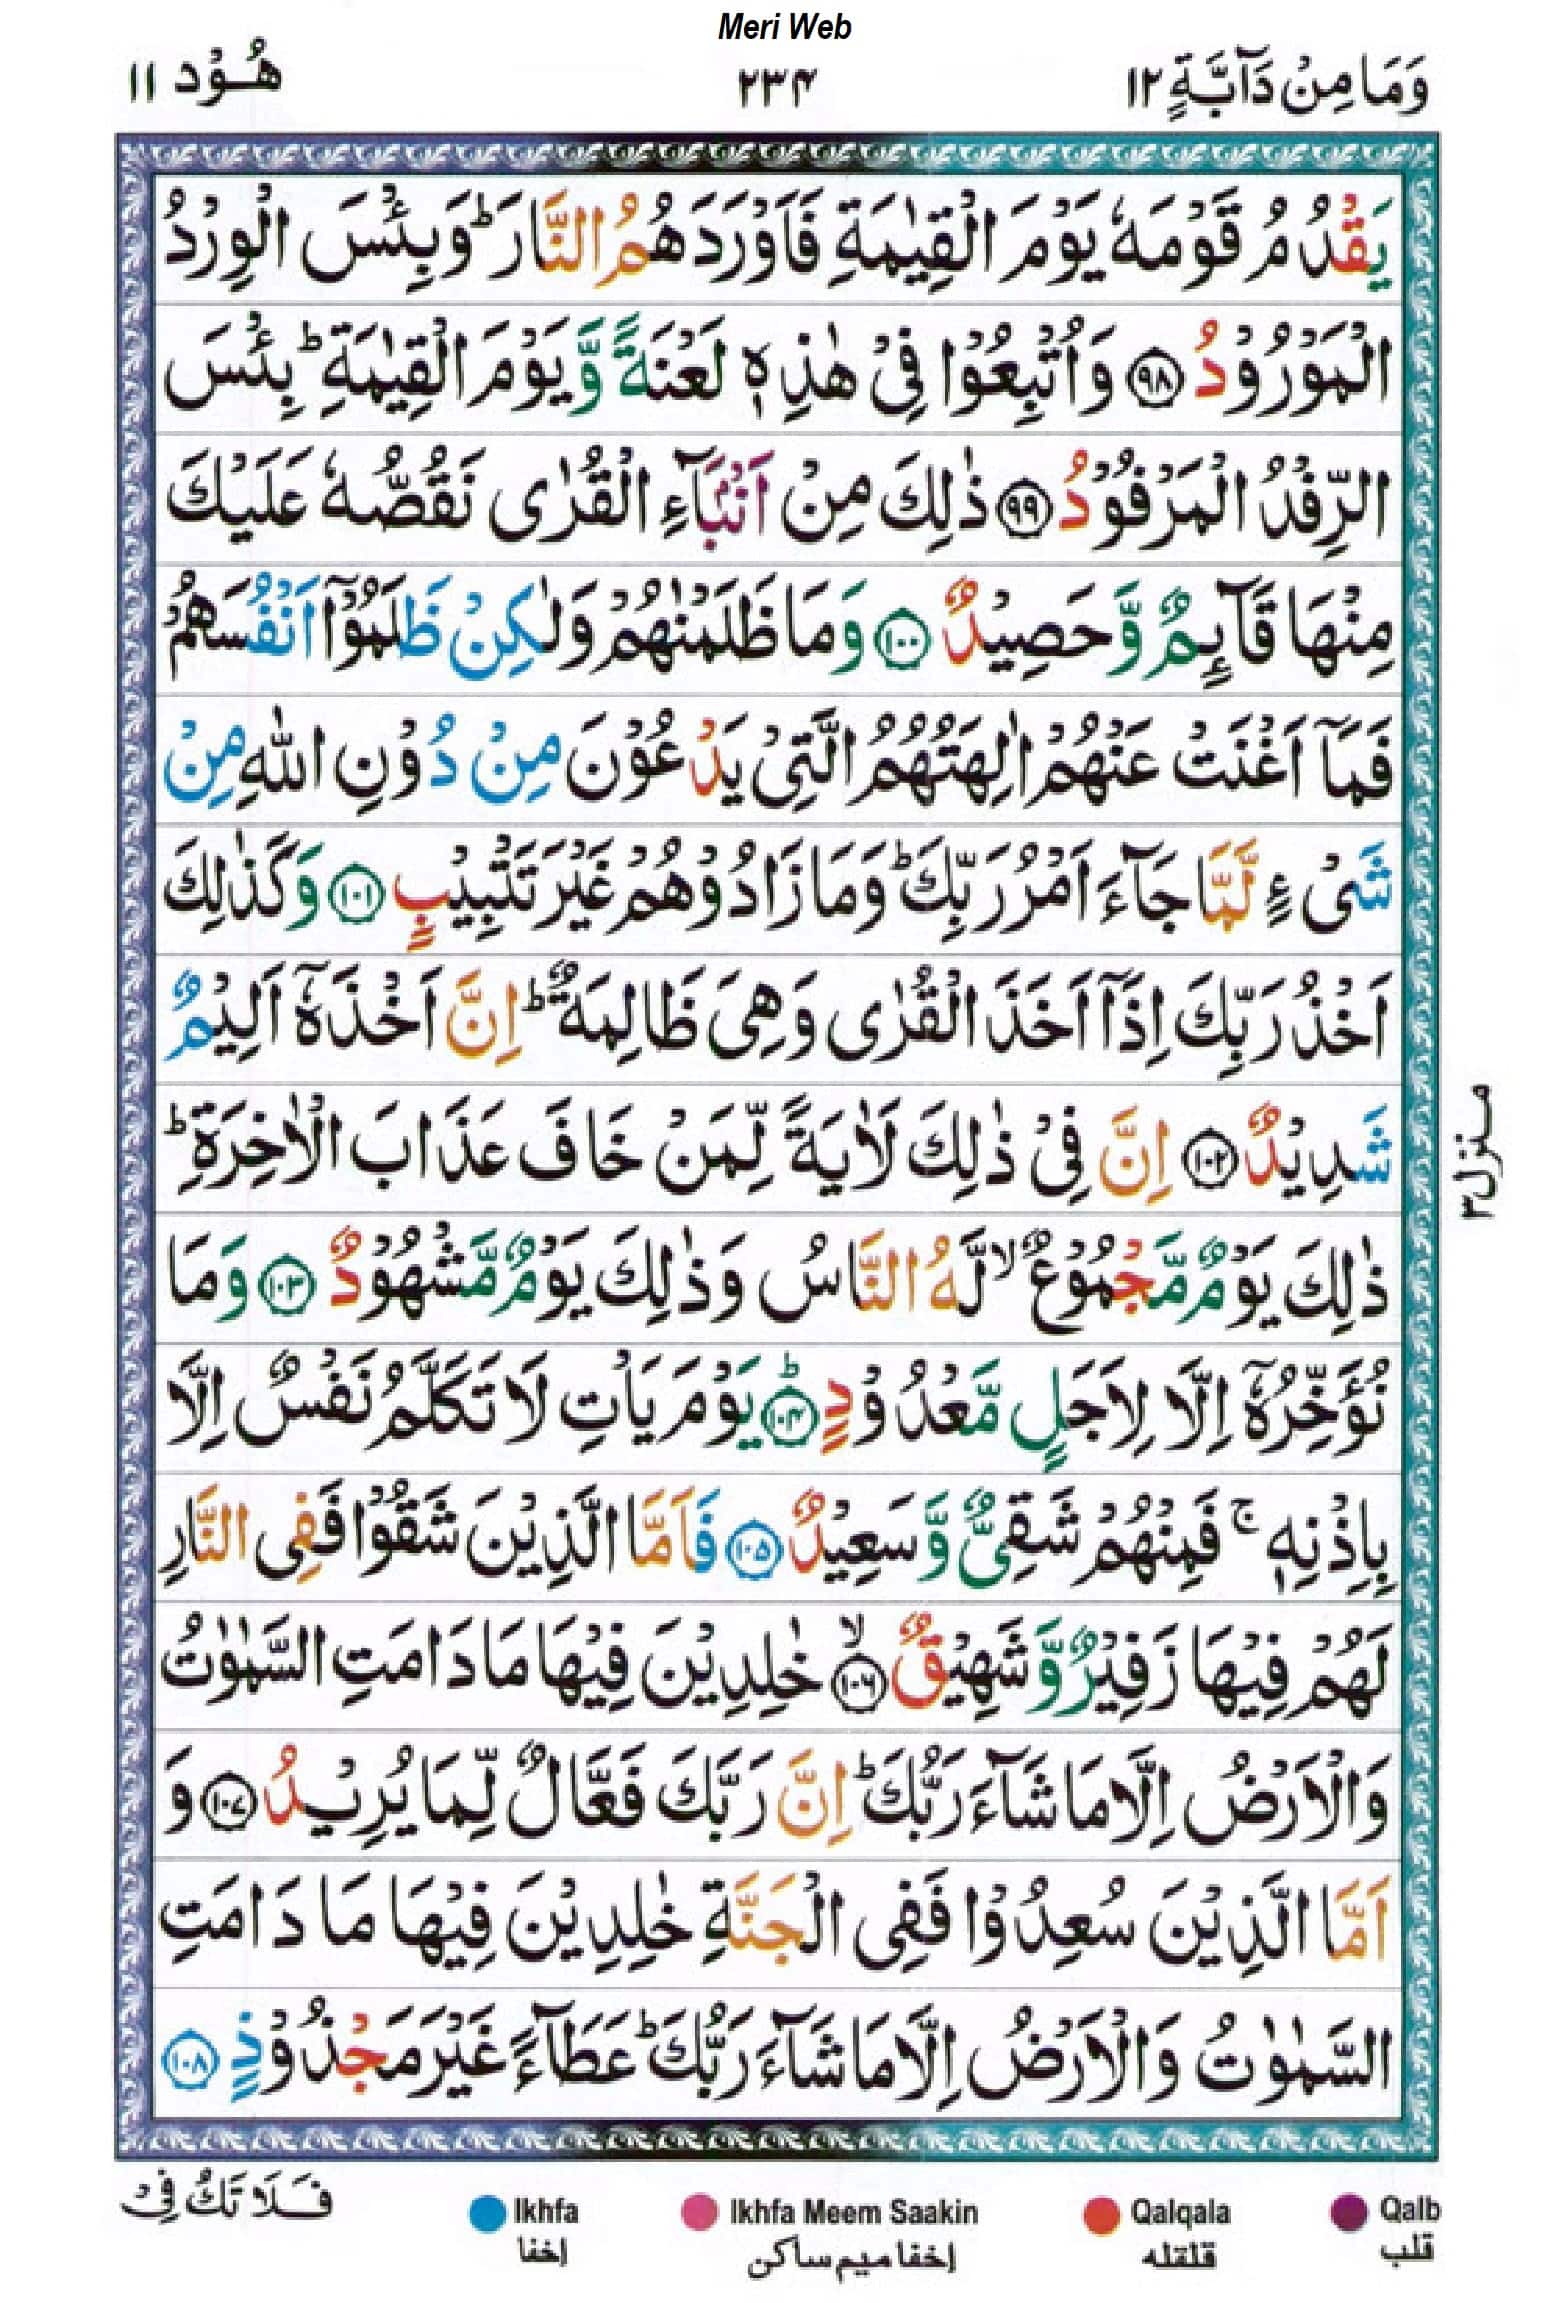 Meri Web
وَمَا مِنْ دَآبَّةٍ ١٢ ٢٣۴ هُوْد ١١
يَقْدُمُ قَوْمَهٗ يَوْمَ الْقِيٰمَةِ فَاَوْرَدَهُمُ النَّارَ ؕ وَبِئْسَ الْوِرْدُ
الْمَوْرُوْدُ ﴿٩٨﴾ وَاُتْبِعُوْا فِيْ هٰذِهٖ لَعْنَةً وَّيَوْمَ الْقِيٰمَةِ ؕ بِئْسَ
الرِّفْدُ الْمَرْفُوْدُ ﴿٩٩﴾ ذٰلِكَ مِنْ اَنْۢبَآءِ الْقُرٰى نَقُصُّهٗ عَلَيْكَ
مِنْهَا قَآئِمٌ وَّحَصِيْدٌ ﴿١٠٠﴾ وَمَا ظَلَمْنٰهُمْ وَلٰكِنْ ظَلَمُوْۤا اَنْفُسَهُمْ
فَمَاۤ اَغْنَتْ عَنْهُمْ اٰلِهَتُهُمُ الَّتِيْ يَدْعُوْنَ مِنْ دُوْنِ اللّٰهِ مِنْ
شَيْءٍ لَّمَّا جَآءَ اَمْرُ رَبِّكَ ؕ وَمَا زَادُوْهُمْ غَيْرَ تَتْبِيْبٍ ﴿١٠١﴾ وَكَذٰلِكَ
اَخْذُ رَبِّكَ اِذَاۤ اَخَذَ الْقُرٰى وَهِيَ ظَالِمَةٌ ؕ اِنَّ اَخْذَهٗۤ اَلِيْمٌ
شَدِيْدٌ ﴿١٠٢﴾ اِنَّ فِيْ ذٰلِكَ لَاٰيَةً لِّمَنْ خَافَ عَذَابَ الْاٰخِرَةِ ؕ
ذٰلِكَ يَوْمٌ مَّجْمُوْعٌ ۙ لَّهُ النَّاسُ وَذٰلِكَ يَوْمٌ مَّشْهُوْدٌ ﴿١٠٣﴾ وَمَا
نُؤَخِّرُهٗۤ اِلَّا لِاَجَلٍ مَّعْدُوْدٍ ؕ ﴿١٠۴﴾ يَوْمَ يَاْتِ لَا تَكَلَّمُ نَفْسٌ اِلَّا
بِاِذْنِهٖ ۚ فَمِنْهُمْ شَقِيٌّ وَّسَعِيْدٌ ﴿١٠۵﴾ فَاَمَّا الَّذِيْنَ شَقُوْا فَفِي النَّارِ
لَهُمْ فِيْهَا زَفِيْرٌ وَّشَهِيْقٌ ۙ ﴿١٠٦﴾ خٰلِدِيْنَ فِيْهَا مَا دَامَتِ السَّمٰوٰتُ
وَالْاَرْضُ اِلَّا مَا شَآءَ رَبُّكَ ؕ اِنَّ رَبَّكَ فَعَّالٌ لِّمَا يُرِيْدُ ﴿١٠٧﴾ وَ
اَمَّا الَّذِيْنَ سُعِدُوْا فَفِي الْجَنَّةِ خٰلِدِيْنَ فِيْهَا مَا دَامَتِ
السَّمٰوٰتُ وَالْاَرْضُ اِلَّا مَا شَآءَ رَبُّكَ ؕ عَطَآءً غَيْرَ مَجْذُوْذٍ ﴿١٠٨﴾
منزل ٣
فَلَا تَكُ فِيْ
Ikhfa Ikhfa Meem Saakin Qalqala Qalb
إخفا إخفا ميم ساكن قلقله قلب